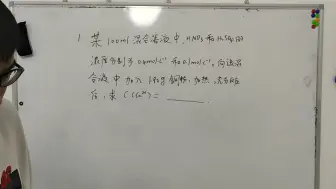 1. 某100ml混合溶液中,HNO₃和H₂SO₄的
浓度分别为0.4mol·L⁻¹和0.1mol·L⁻¹,向该混
合液中加入1.92g铜粉,加热,充分反应
后,求c(Cu²⁺)=______